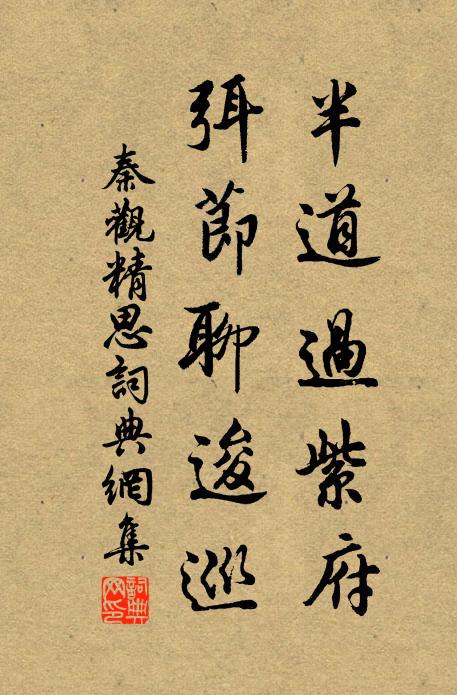 半道過紫府
弭節聊逡巡
秦觀精思詞典網集
詞典網印